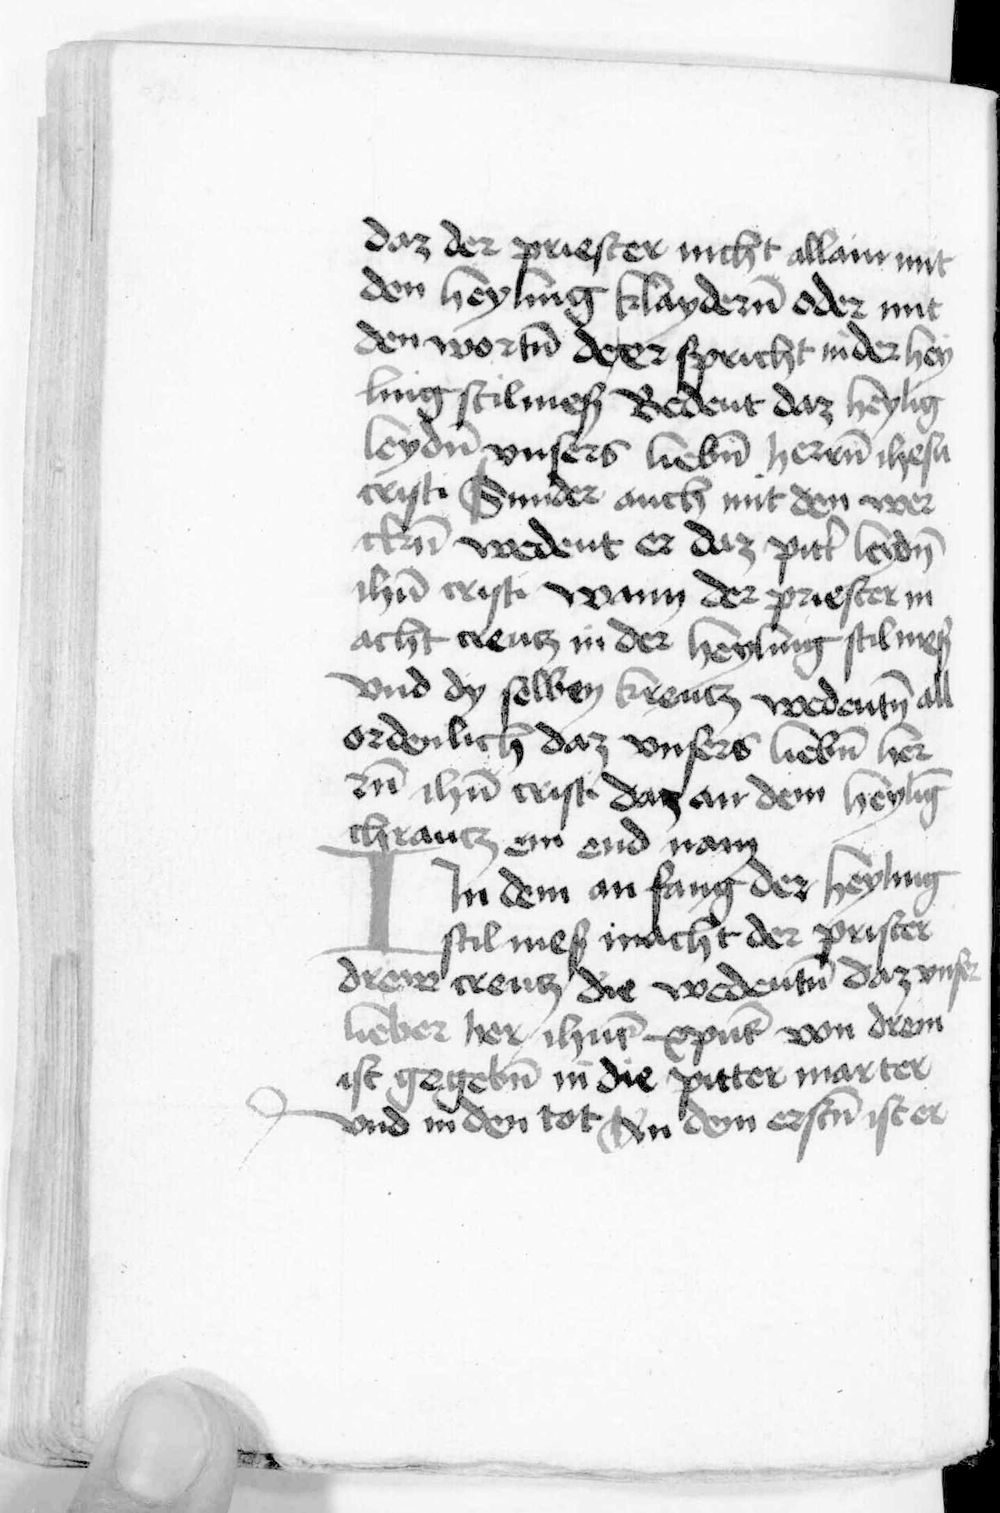 daz der priester nicht allain mit
den heyling klaydern̄ oder mit
den wortn̄ dy er spricht in der hey
ling stilmeß Bedeut daz heylig
leydn̄ vnsers liebn̄ herrn̄ ihesu
cristi Sunder auch mit den wer
ckn̄ wedeut er daz pitt' leydn̄
ihū cristi wann der priester in
acht creutz in der heyling stilmeß
vnd dy selben kreutz wedeutn̄ all
ordenlich daz vnsers liebn̄ her
rn̄ ihū cristi daz an dem heyliḡ
chrautz ein end nam
In dem an fang der heyling
stil meß macht der prister
drew creutz die wedeutn̄ daz vnser
lieber her ihūs xpūs von drein
ist gegebn̄ in die pitter marter
vnd in den tot An dem erstn̄ ist er